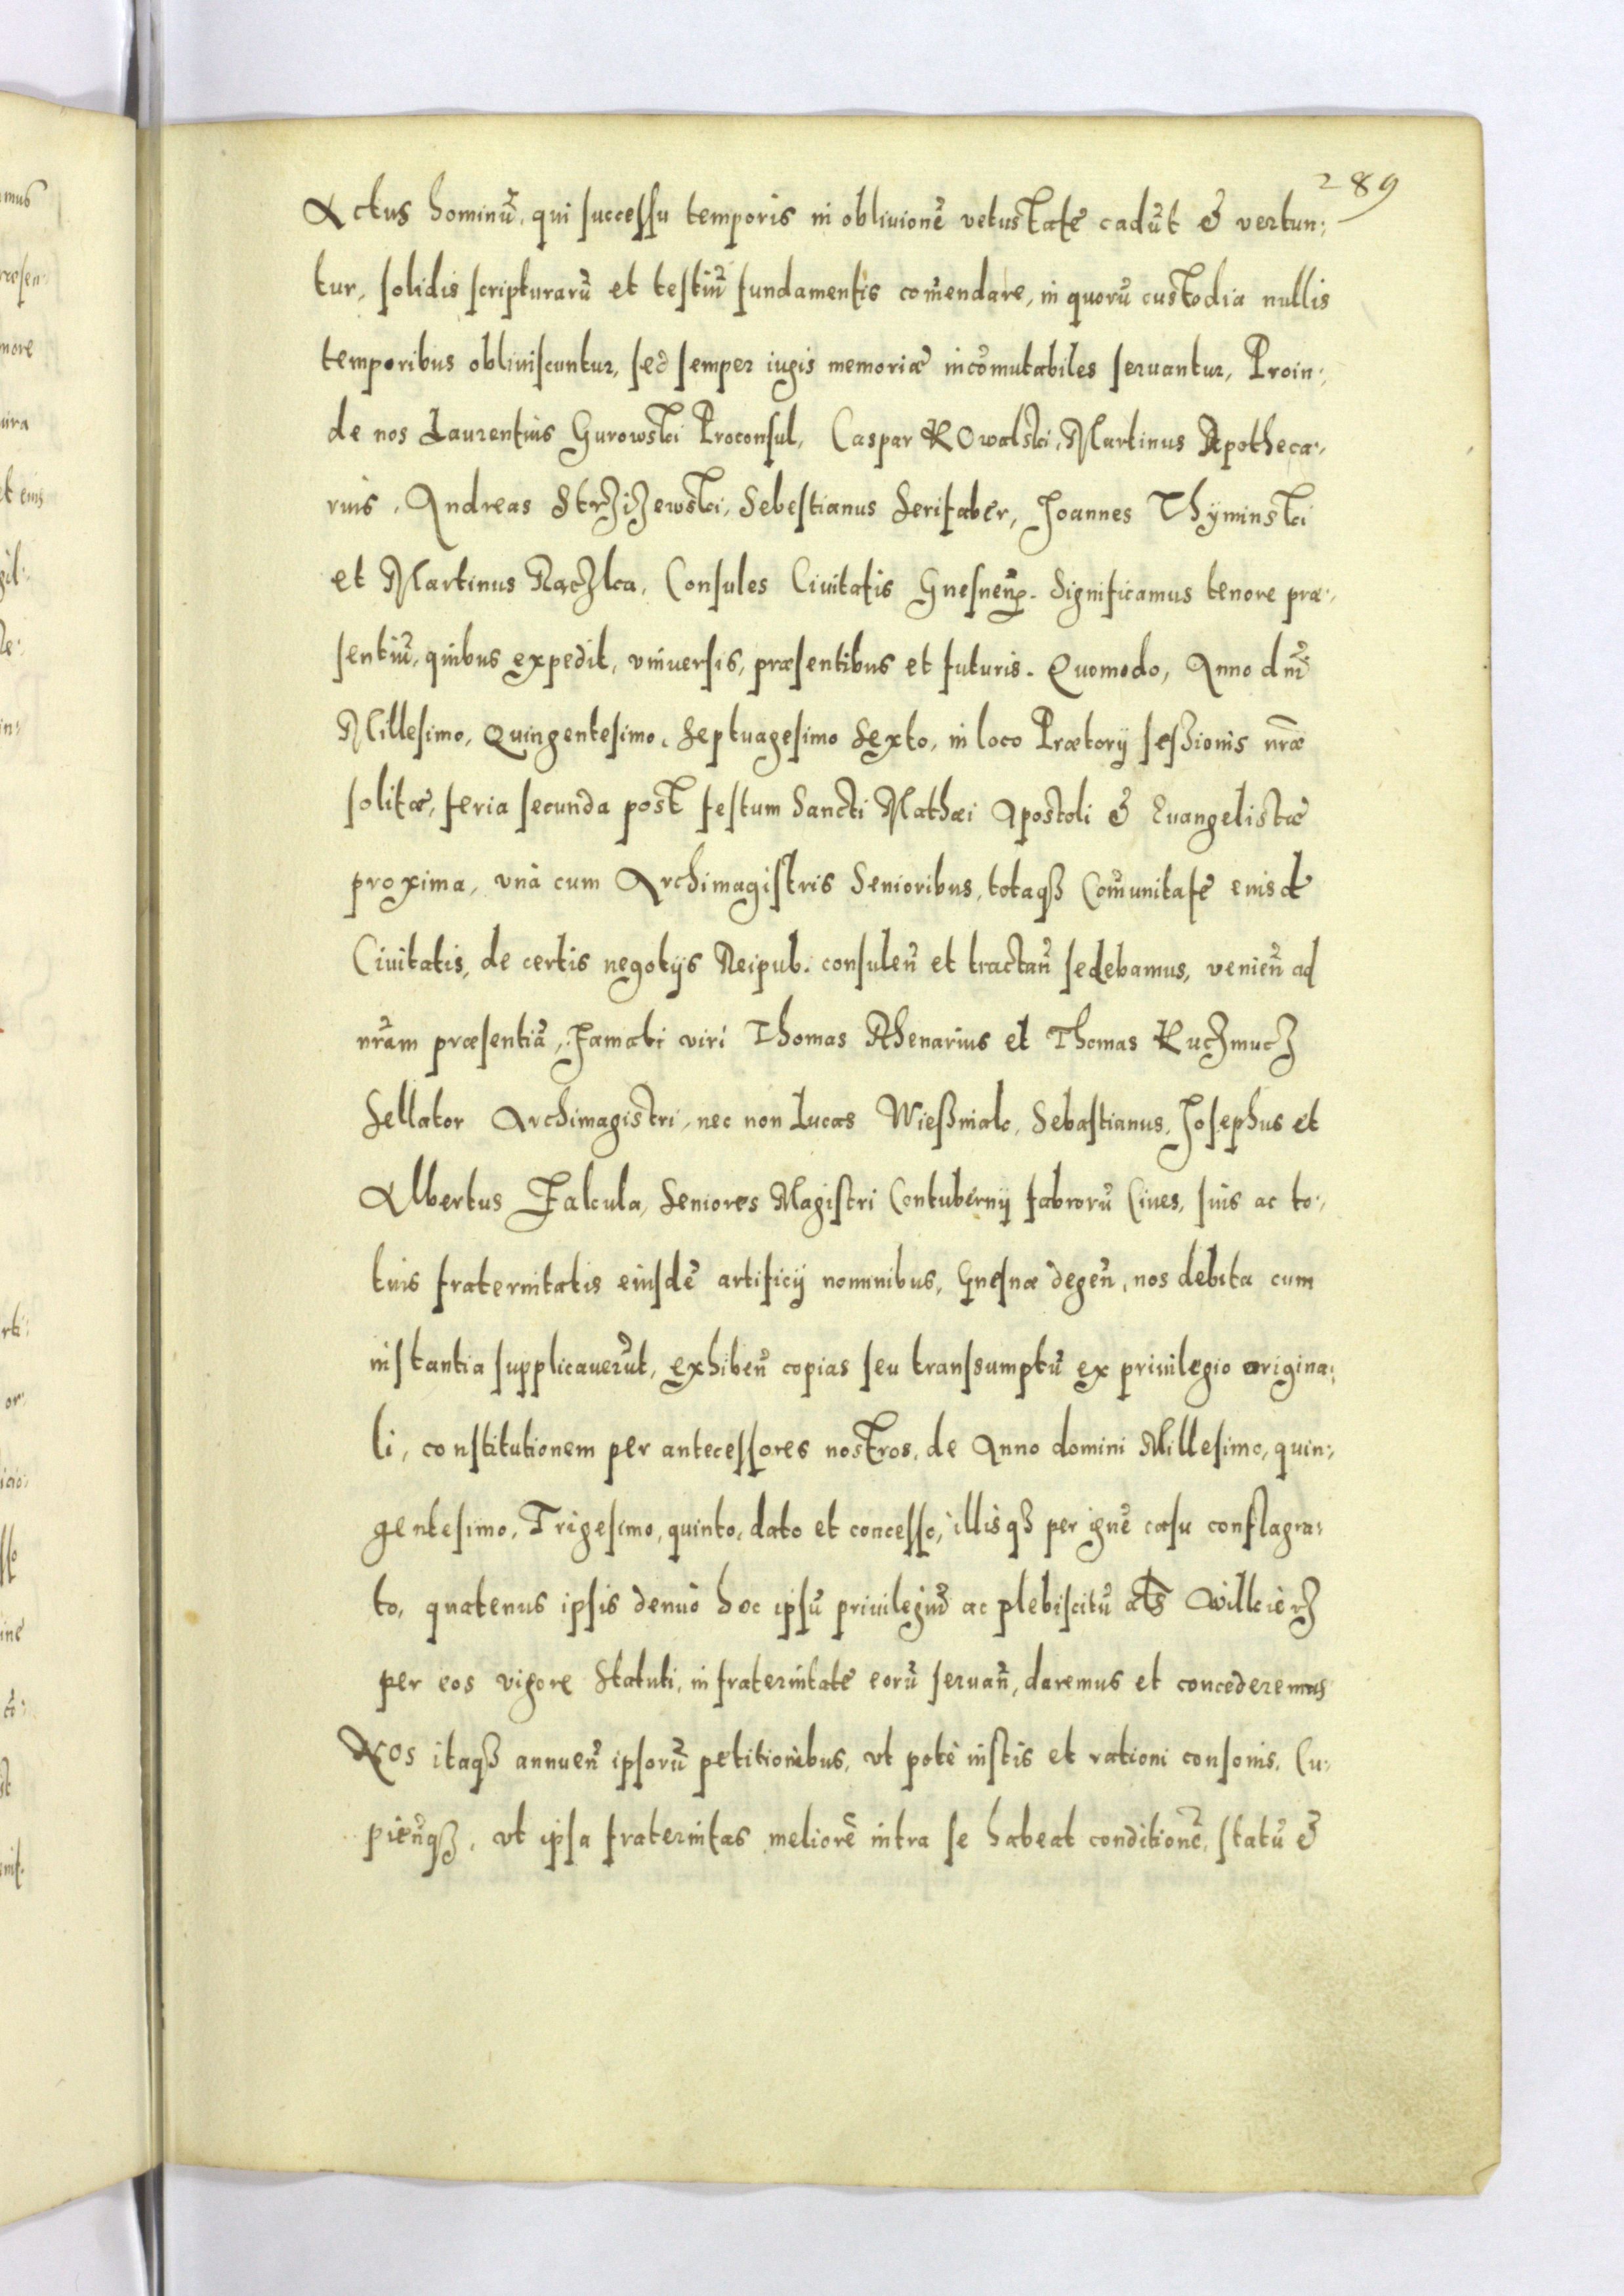 289
Actus hominũ, qui successu temporis in obliuionẽ vetustate cadũt & vertun:
tur, solidis scripturarũ et testiũ fundamentis com̃endare, in quorũ custodia nullis
temporibus obliuiscuntur, sed semper iugis memoriæ incõmutabiles seruantur, Proin:
de nos Laurentius Gurowski Proconsul, Caspar KOwalski, Martinus Apotheca:
rius, Andreas Strzizewski, Sebestianus Serifaber, Joannes Thyminski
et Martinus Raczka, Consules Ciuitatis Gnesneñ. Significamus tenore præ:
sentiũ, quibus expedit, vniuersis, præsentibus et futuris. Quomodo, Anno dñi
Millesimo, Quingentesimo, Septuagesimo Sexto, in loco Prætorij seßionis nr̃æ
solitæ, feria secunda post festum Sancti Mathæi Apostoli & Euangelistæ
proxima, vnà cum Archimagistris Senioribus, totaqȝ Com̃unitate eiusd
Ciuitatis, de certis negotijs Reipub. consuleñ et tractañ sedebamus, venieñ ad
nr̃am præsentiã, Famati viri Thomas Rhenarius et Thomas Kuczmucz
Sellator Archimagistri, nec non Lucas Wießniak, Sebastianus, Josephus et
Albertus Falcula, Seniores Magistri Contubernij fabrorũ Ciues, suis ac to:
tius fraternitatis eiusdẽ artificij nominibus, Gnesnæ degeñ, nos debita cum
instantia supplicauerũt, exhibeñ copias seu transsumptũ ex priuilegio origina:
li, constitutionem per antecessores nostros, de Anno domini Millesimo, quin:
gentesimo, Trigesimo, quinto, dato et concesso, illisqȝ per ignẽ casu conflagra:
to, quatenus ipsis denuò hoc ipsũ priuilegiũ ac plebiscitũ als Willkierz
per eos vigore Statuti, in fraternitate eorũ seruañ, daremus et concederemus
NOs itaqȝ annueñ ipsorũ petitionibus, vt potè iustis et rationi consonis, Cu:
pieñqȝ, vt ipsa fraternitas meliorẽ intra se habeat conditionẽ, statũ &